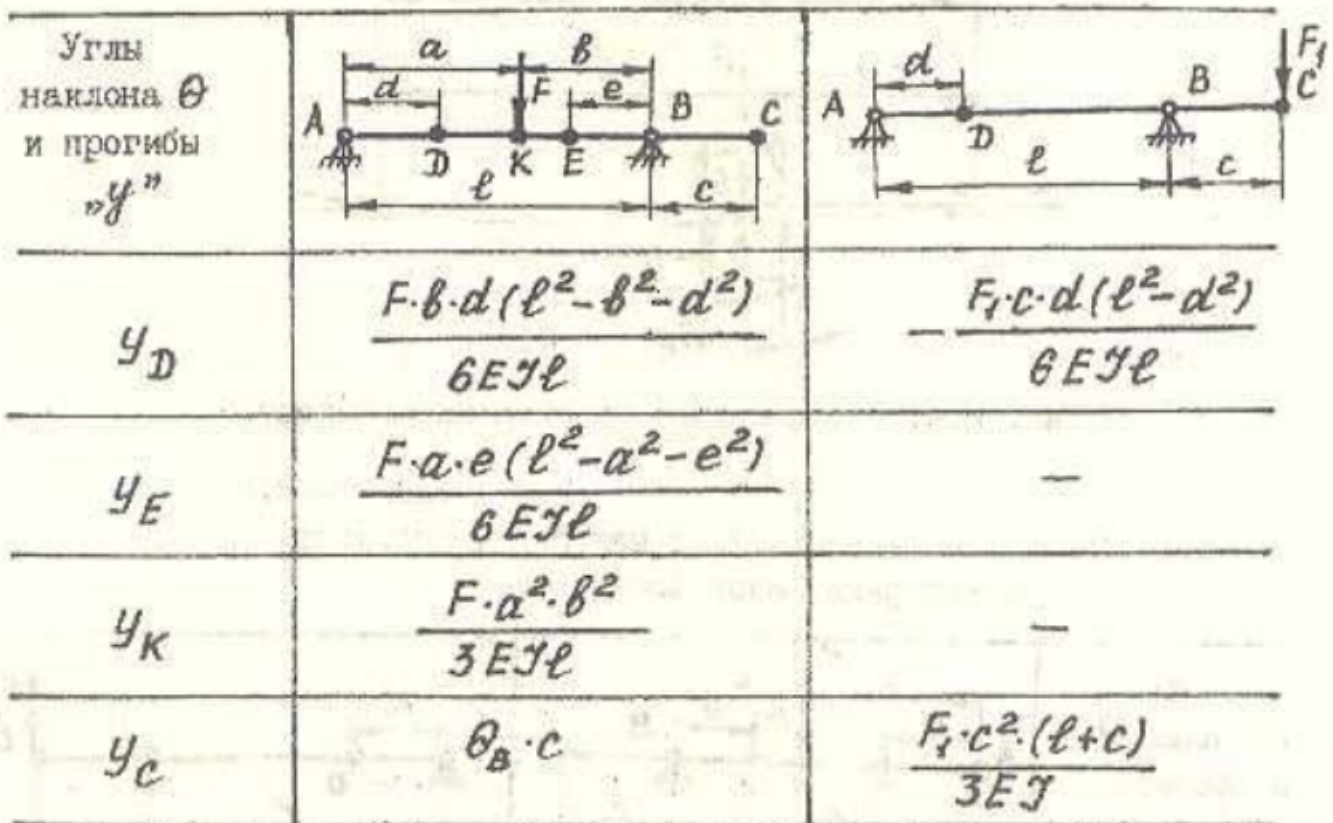 Углы
наклона θ
и прогибы
„y”
a b
d F e
A B C
D K E
l c
F₁
d B C
A D
l c
y_D F·b·d(l²-b²-d²) / 6EJl -F₁·c·d(l²-d²) / 6EJl
y_E F·a·e(l²-a²-e²) / 6EJl —
y_K F·a²·b² / 3EJl —
y_C θ_B·c F₁·c²·(l+c) / 3EJ